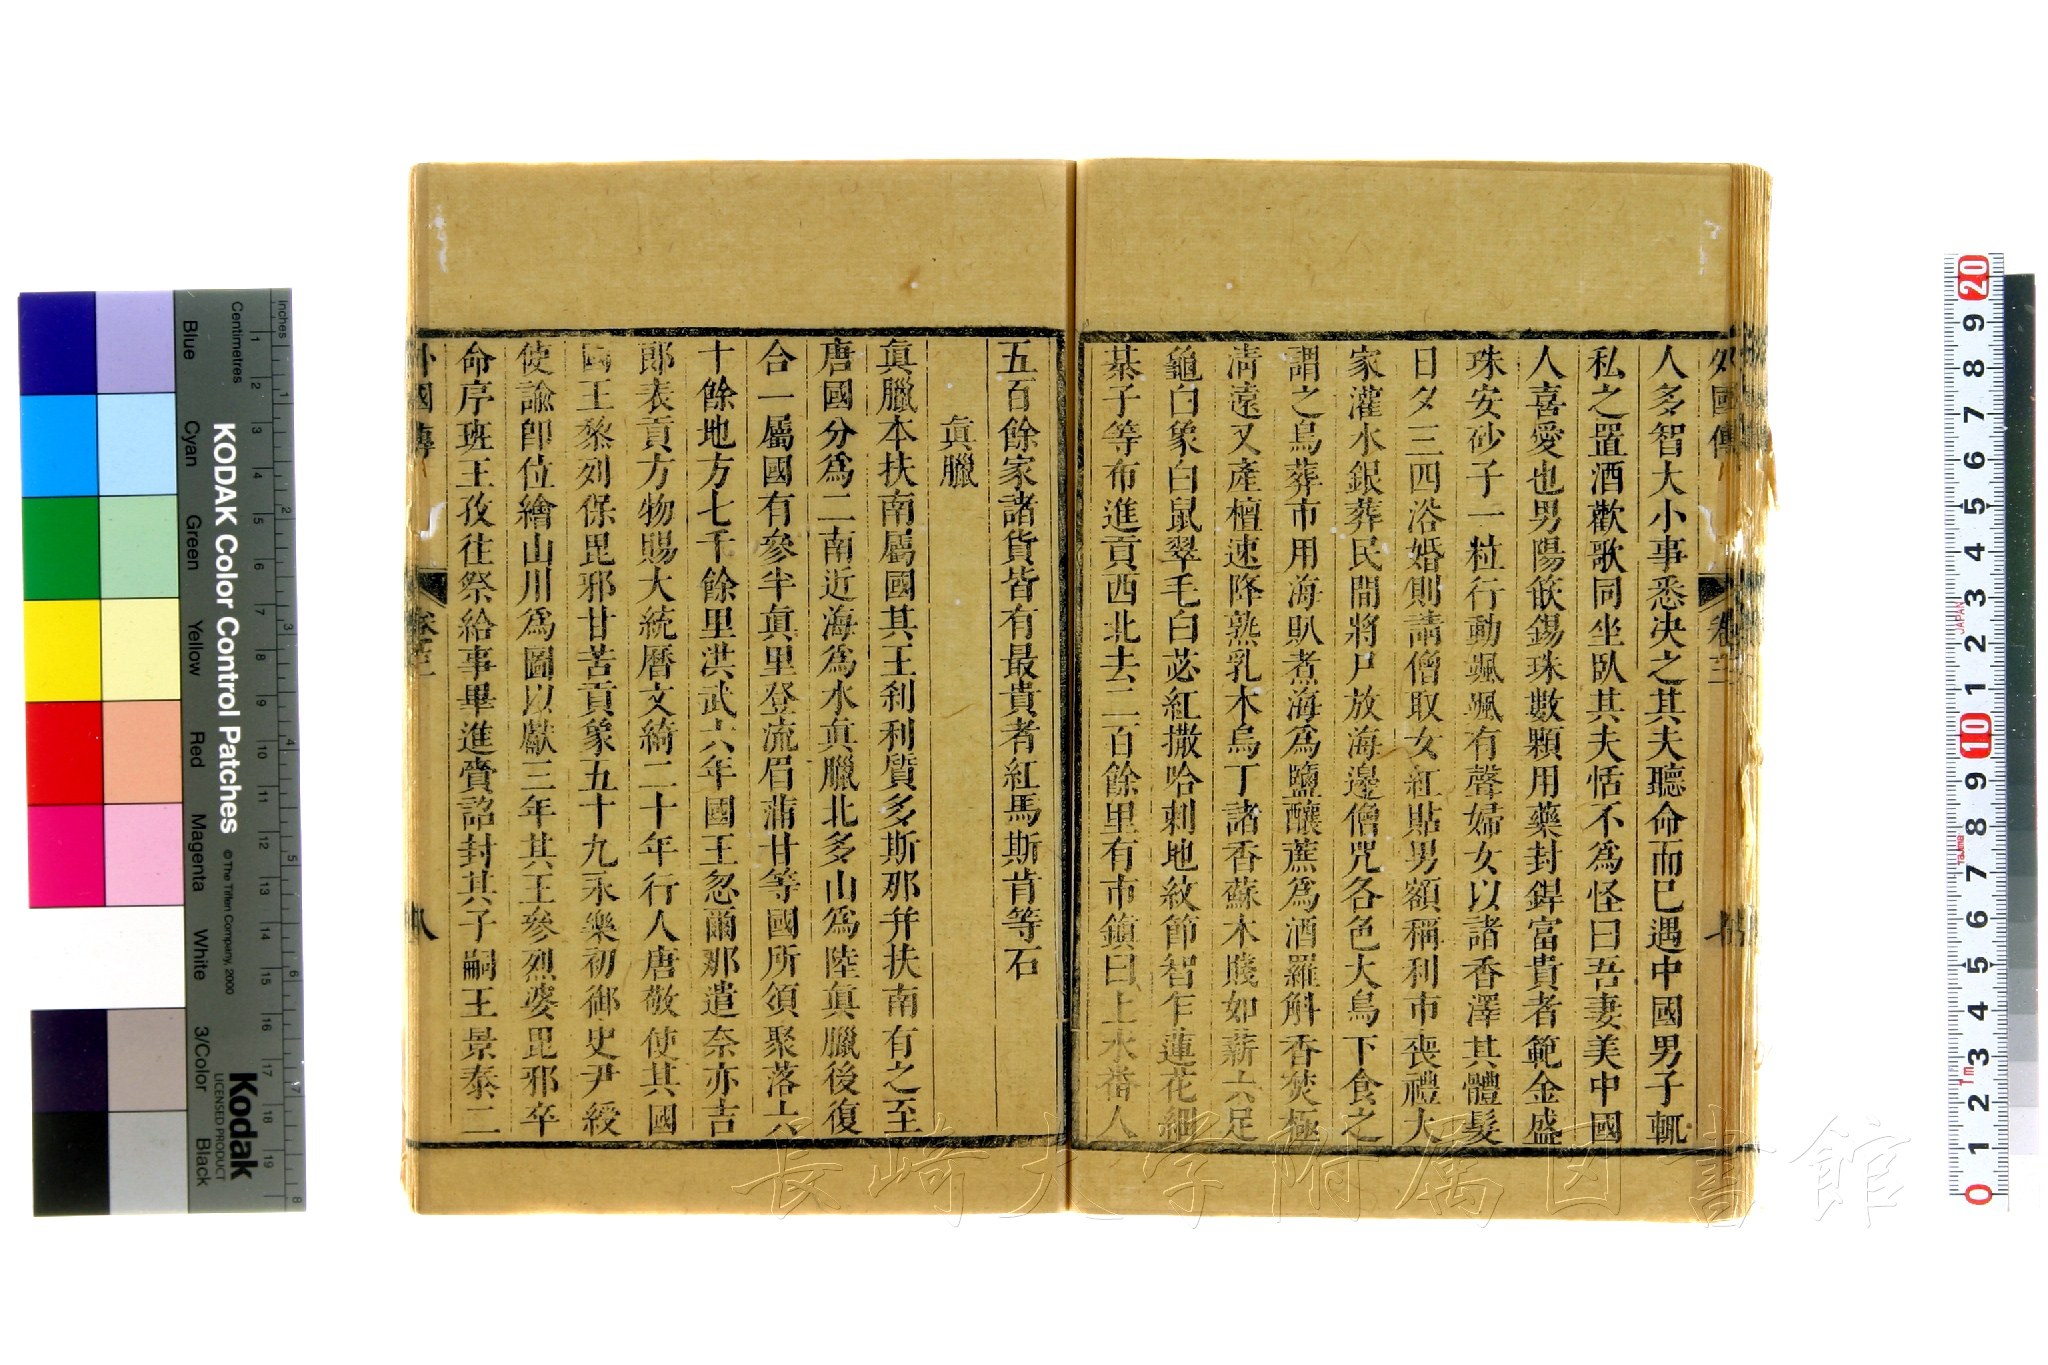 外國傳 卷三
人多智大小事悉决之其夫聽命而已遇中國男子輒
私之置酒歡歌同坐臥其夫恬不為怪曰吾妻美中國
人喜愛也男陽嵌錫珠數顆用藥封銲富貴者範金盛
珠安砂子一粒行動颯颯有聲婦女以諸香澤其體髮
日夕三四浴婚則請僧取女紅貼男額稱利市喪禮大
家灌水銀葬民間將尸放海邊僧咒各色大鳥下食之
謂之鳥葬市用海𧴩煮海為鹽釀蔗為酒羅斛香焚極
清遠又產檀速降熟乳木烏丁諸香蘇木賤如薪六足
龜白象白鼠翠毛白苾紅撒哈剌地紋節智乍蓮花細
棊子等布進貢西北去二百餘里有市鎮曰上水番人
五百餘家諸貨皆有最貴者紅馬斯肯等石
眞臘
眞臘本扶南屬國其王刹利質多斯那并扶南有之至
唐國分為二南近海為水眞臘北多山為陸眞臘後復
合一屬國有參半眞里登流眉蒲甘等國所領聚落六
十餘地方七千餘里洪武六年國王忽爾那遣奈亦吉
郎表貢方物賜大統曆文綺二十年行人唐敬使其國
國王黎列保毘邪甘苦貢象五十九永樂初御史尹綬
使諭卽位繪山川為圖以獻三年其王參烈婆毘邪卒
命序班王孜往祭給事畢進賫詔封其子嗣王景泰二
外國傳 卷三 八
Inches
Centimetres
KODAK Color Control Patches
© The Tiffen Company, 2000
Kodak
LICENSED PRODUCT
Blue
Cyan
Green
Yellow
Red
Magenta
White
3/Color
Black
長崎大学附属図書館
JAPAN
Tajima